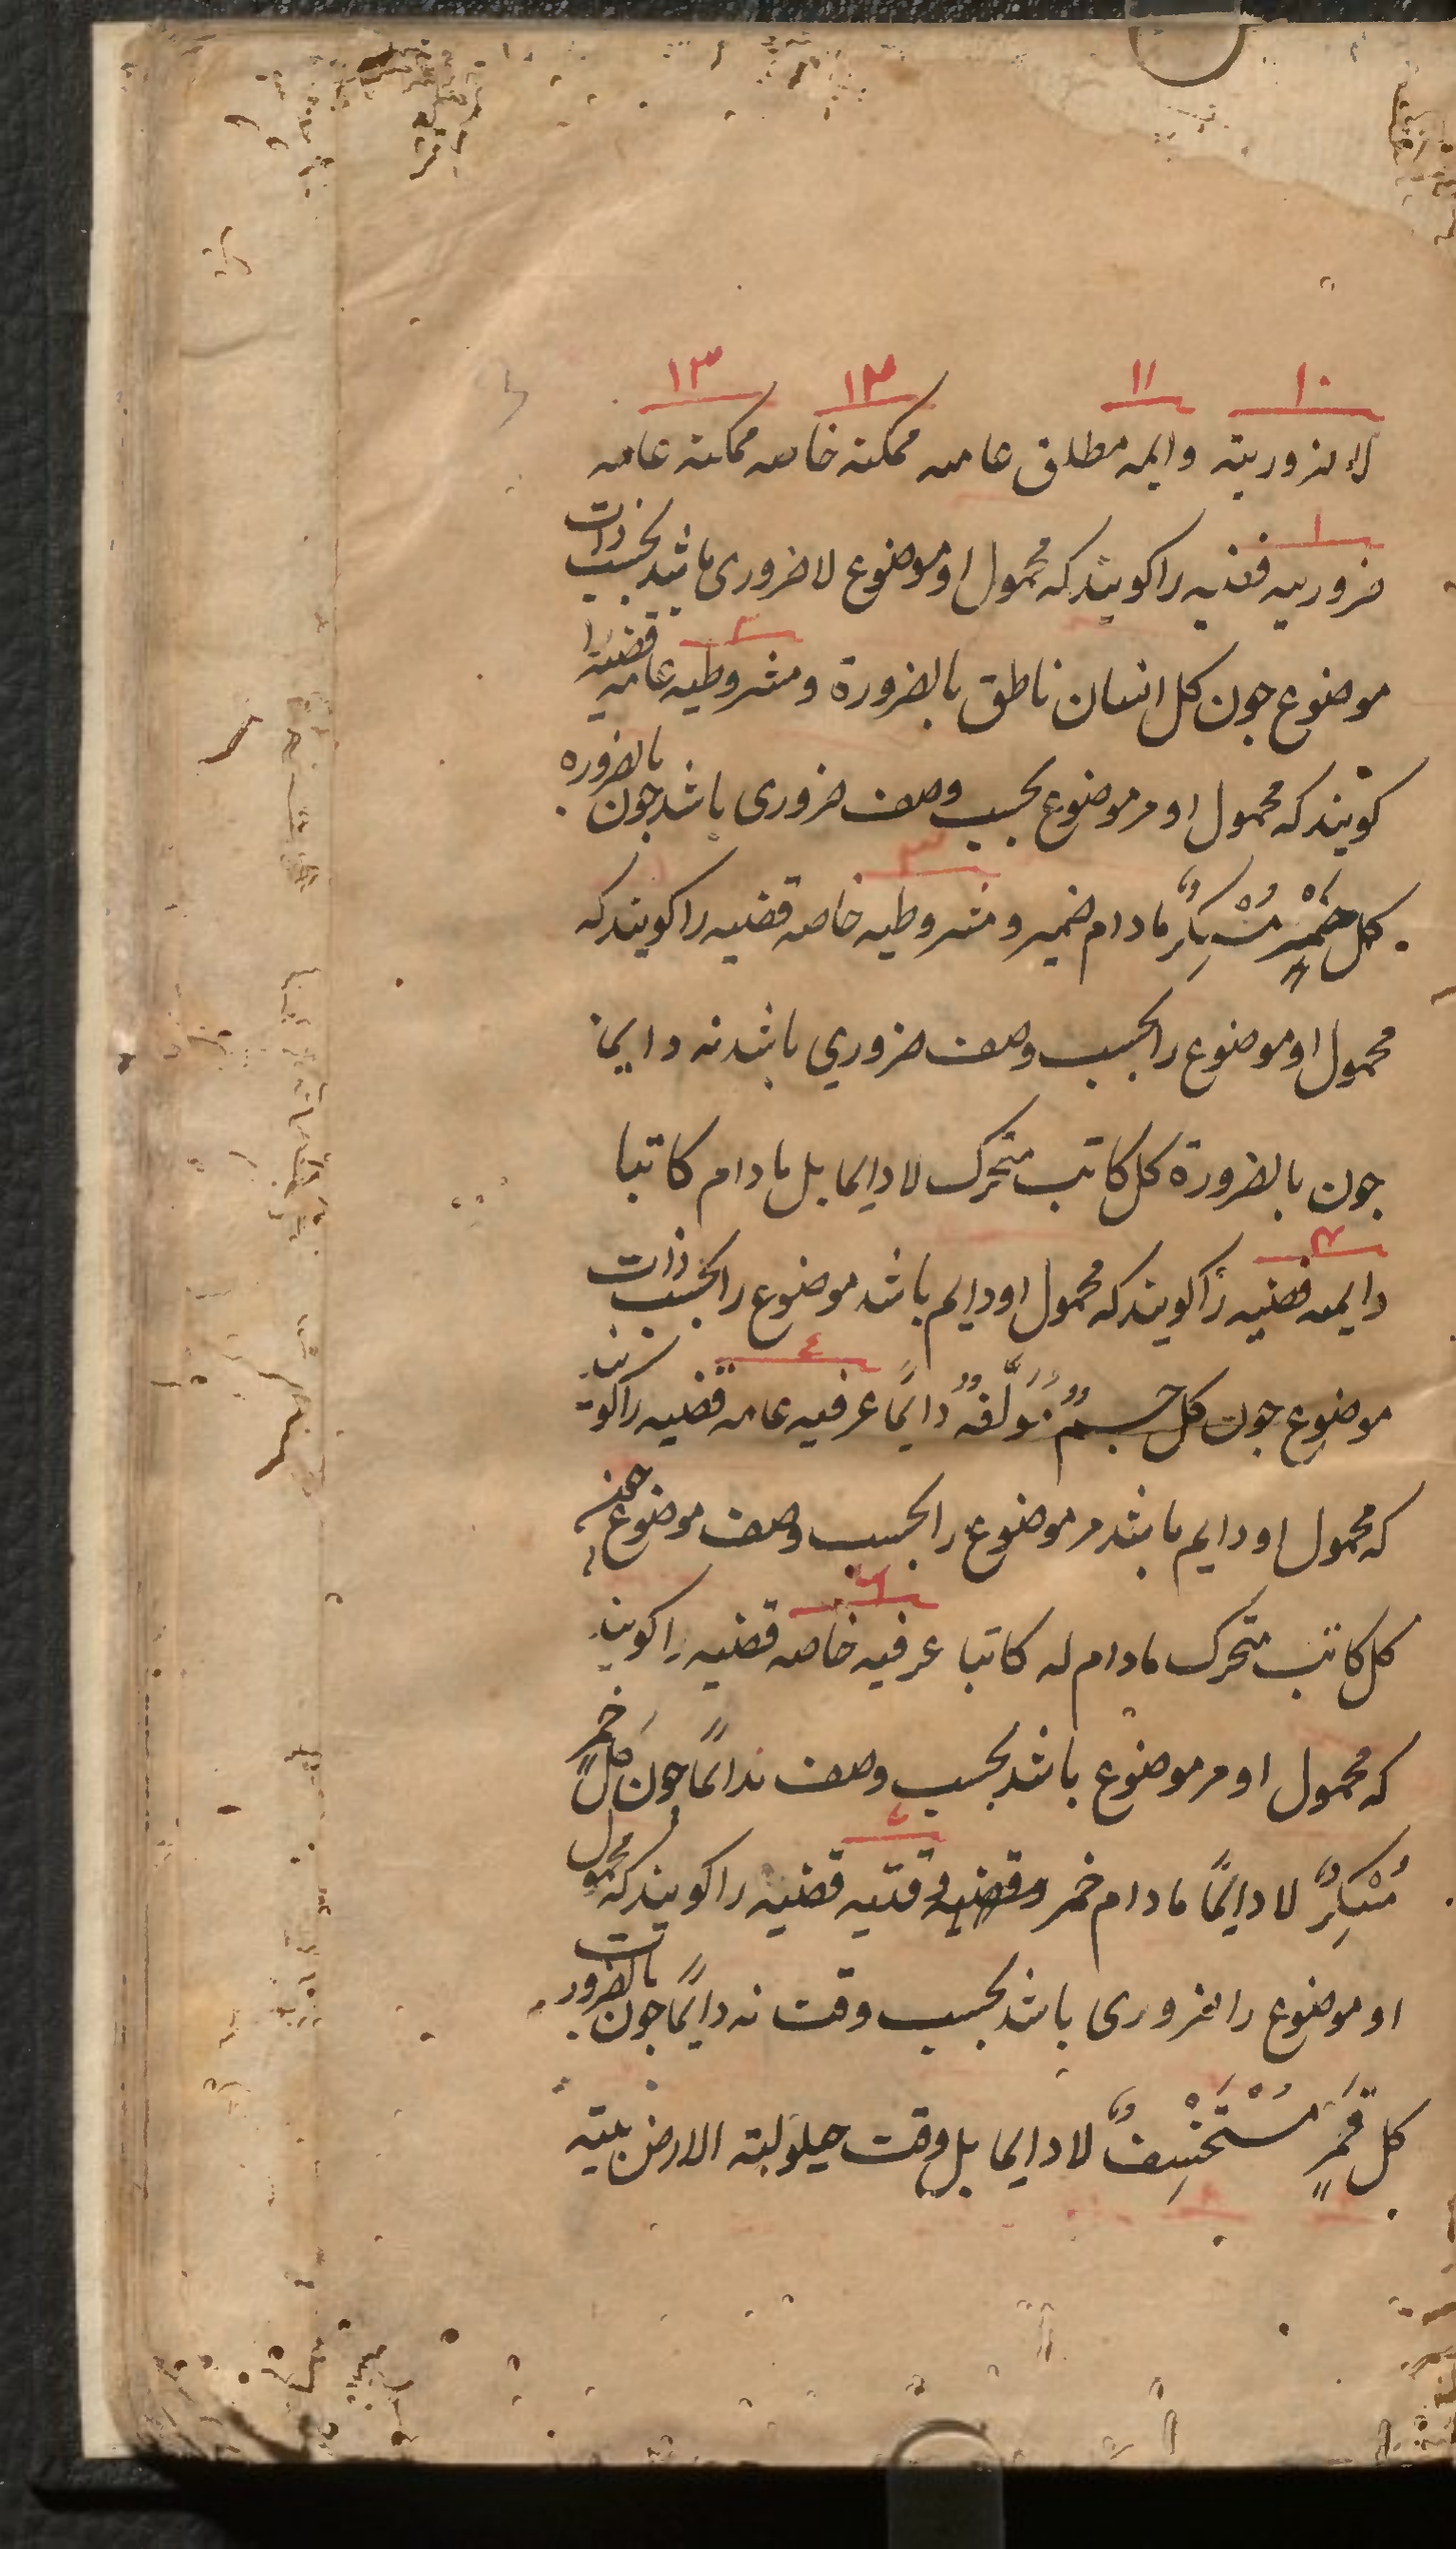 ۱۰ ۱۱ ۱۳ ۱۳
لا لزوریته وایمه مطلق عامه ممکنه خاصه ممکنه عامه
۱
ضروریه قضیه را کویند که محمول او موضوع لا ضروری باشد بحسب ذات
۲
موضوع جون کل انسان ناطق بالضرورة و مشروطیه عامه قضیه را
کویند که محمول او مر موضوع بحسب وصف ضروری باشد جون بالضروره
۳
کل خَمْرٍ مُسْکِرٌ مادام خمیر و مشروطیه خاصه قضیه را کویند که
محمول او موضوع را بحسب وصف ضروري باشد نه دایما
جون بالضرورة کل کاتب متحرک لا دایما بل مادام کاتبا
۴
دایمه قضیه را کویند که محمول او دایم باشد موضوع را بحسب ذات
موضوع جون کل جسم مُوَلَّفٌ دایمًا عرفیه عامه قضیه را کویند
که محمول او دایم باشد مر موضوع را بحسب وصف موضوع جون
۶
کل کاتب متحرک مادام له کاتبا عرفیه خاصه قضیه را کویند
که محمول او مر موضوع باشد بحسب وصف ندائمًا جون کل خمر
مُسْکِرٌ لا دایمًا مادام خمر و وقتیه قضیه را کویند که محمول
او موضوع را ضروری باشد بحسب وقت نه دایمًا جون بالضرورت
کل قَمَرٍ مُسْتَخْسِفٌ لا دایما بل وقت حیلولته الارض بینه